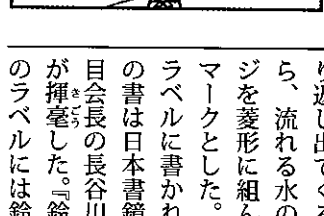 り返し出てくる
ら、流れる水の
ジを菱形に組ん
マークとした。
ラベルに書かれ
の書は日本書鏡
目会長の長谷川
が揮毫した。『鈴
きごう
のラベルには鈴